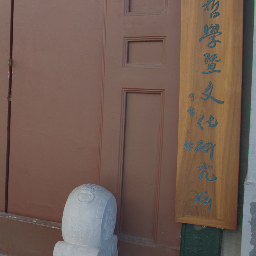 哲學暨文化研究所